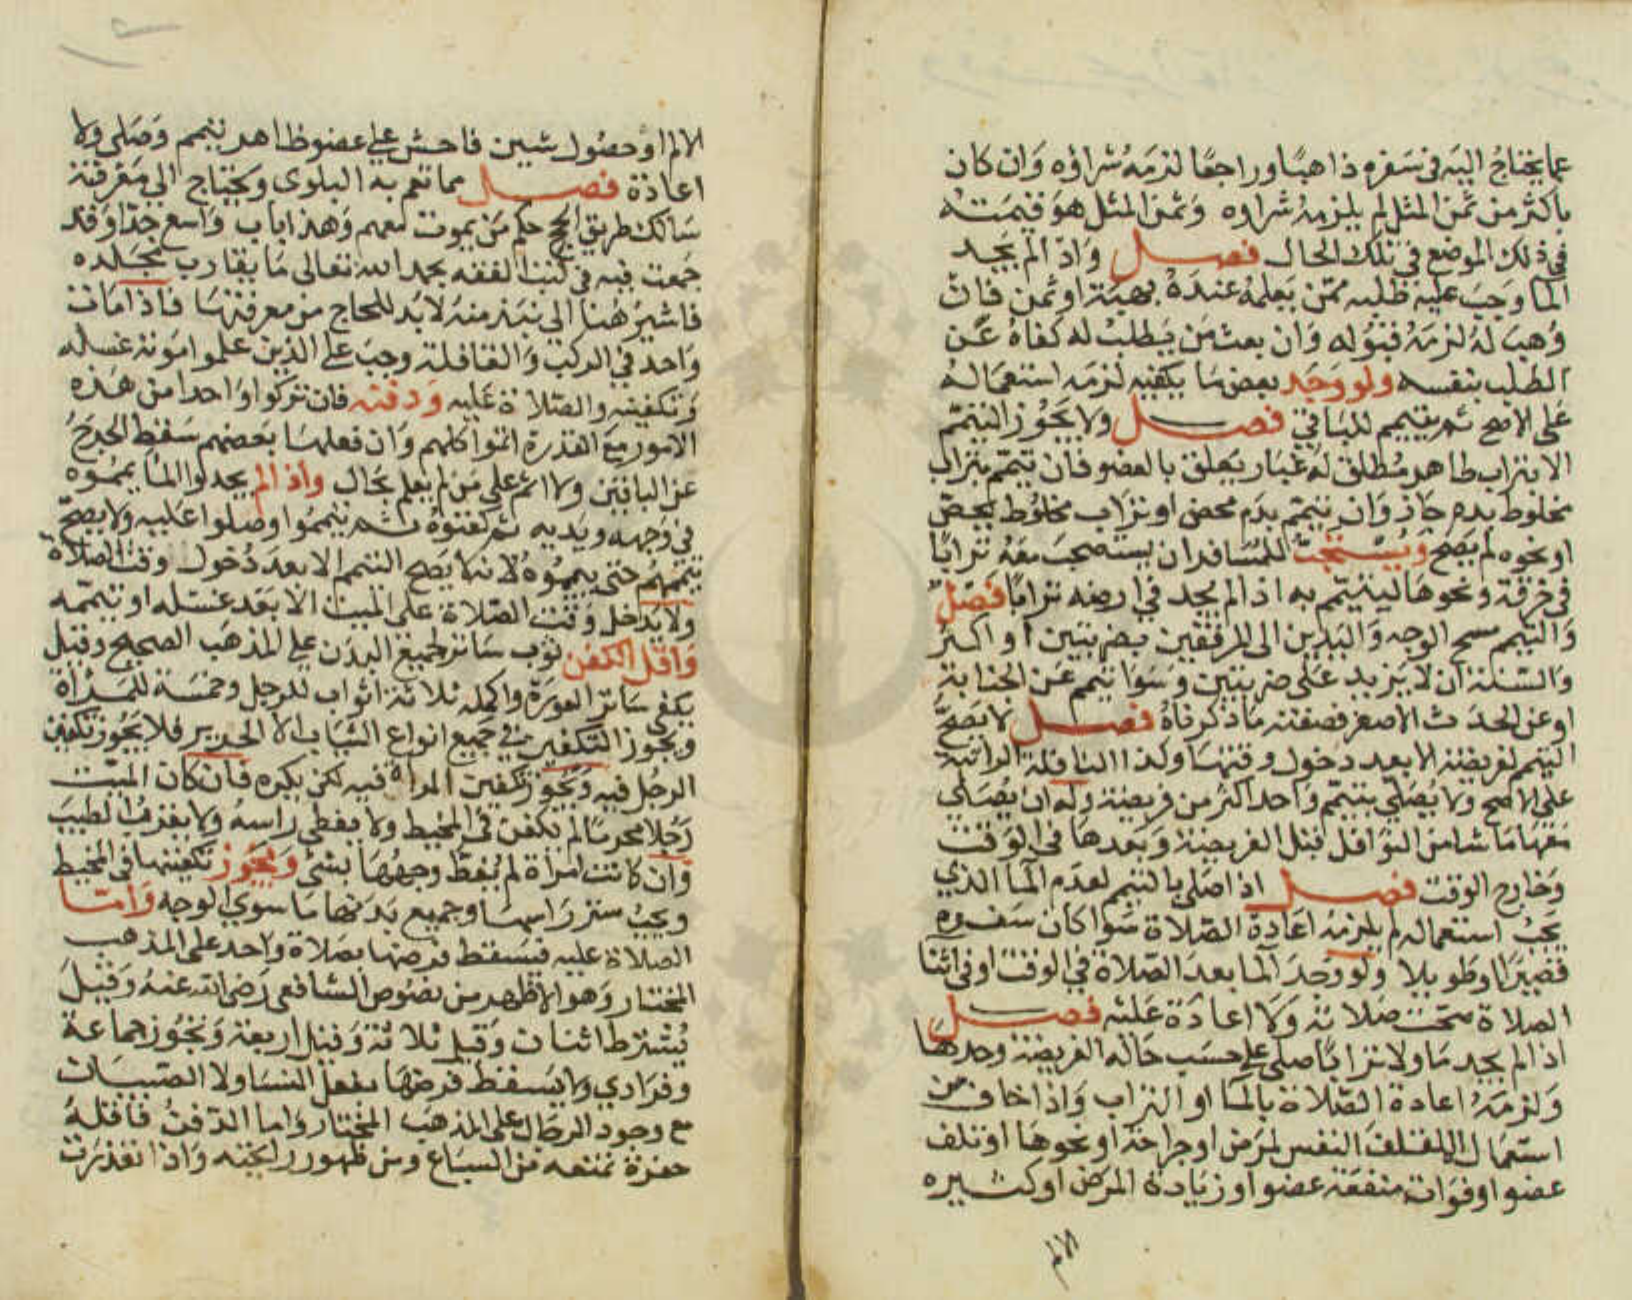 عما يحتاج اليه في سفره ذاهبا وراجعا لزمه شراؤه وان كان
باكثر من ثمن المثل لم يلزمه شراوه وثمن المثل هو قيمته
في ذلك الموضع في تلك الحال فصل واذا لم يجد
الما وجب عليه طلبه ممن يعلمه عنده بهبة او ثمن فان
وهب له لزمه قبوله وان بعث من يطلب له كفاه عن
الطلب بنفسه ولو وجد بعض ما يكفيه لزمه استعماله
على الاصح ثم يتيمم للباقي فصل ولا يجوز التيمم
الا بتراب طاهر مطلق له غبار يعلق بالعضو فان تيمم بتراب
مخلوط بدم جاز وان تيمم بدم محض او تراب مخلوط بجص
او نحوه لم يصح ويستحب للمسافر ان يستصحب معه ترابا
في خرقة ونحوها ليتيمم به اذا لم يجد في ارضه ترابا فصل
والتيمم مسح الوجه واليدين الى المرفقين بضربتين او اكثر
والسنة ان لا يزيد على ضربتين وسوا تيمم عن الجنابة
او عن الحدث الاصغر فصفته ما ذكرناه فصل لا يصح
التيمم لفريضة الا بعد دخول وقتها وكذا النافلة الراتبة
على الاصح ولا يصلي بتيمم واحد اكثر من فريضة وله ان يصلي
معها ما شا من النوافل قبل الفريضة وبعدها في الوقت
وخارج الوقت فصل اذا صلى بالتيمم لعدم الما الذي
يجب استعماله لم يلزمه اعادة الصلاة سوا كان سفره
قصيرا او طويلا ولو وجد الما بعد الصلاة في الوقت او في اثنا
الصلاة صحت صلاته ولا اعادة عليه فصل
اذا لم يجد ما ولا ترابا صلى على حسب حاله الفريضة وحدها
ولزمه اعادة الصلاة بالما او التراب واذا خاف من
استعمال الما تلف النفس لمرض او جراحة او نحوها او تلف
عضو او فوات منفعة عضو او زيادة المرض او كثيره
الالم
الالم او حصول شين فاحش على عضو ظاهر تيمم وصلى ولا
اعادة فصل مما تعم به البلوى ويحتاج الى معرفته
سالك طريق الحج حكم من يموت معهم وهذا باب واسع جدا وقد
جمعت فيه في كتب الفقه بحمد الله تعالى ما يقارب مجلده
فاشير هنا الى نبذ منه لا بد للحاج من معرفتها فاذا مات
واحد في الركب والقافلة وجب على الذين علموا موته غسله
وتكفينه والصلاة عليه ودفنه فان تركوا واحدا من هذه
الامور مع القدرة اثموا كلهم وان فعلها بعضهم سقط الحرج
عن الباقين ولا اثم على من لم يعلم بحال واذا لم يجدوا الما يمموه
في وجهه ويديه ثم كفنوه ثم تيمموا وصلوا عليه ولا يصح
تيممهم حتى يمموه لانه لا يصح التيمم الا بعد دخول وقت الصلاة
ولا يدخل وقت الصلاة على الميت الا بعد غسله او تيممه
واقل الكفن ثوب ساتر لجميع البدن على المذهب الصحيح وقيل
يكفي ساتر العورة واكمله ثلاثة اثواب للرجل وخمسة للمراة
ويجوز التكفين في جميع انواع الثياب الا الحرير فلا يجوز تكفين
الرجل فيه ويجوز تكفين المراة فيه لكن يكره فان كان الميت
رجلا محرما لم يكفن في المخيط ولا يغطى راسه ولا يقرب الطيب
وان كانت امراة لم يغط وجهها بشي ويجوز تكفينها في المخيط
ويجب ستر راسها وجميع بدنها ما سوى الوجه واما
الصلاة عليه فيسقط فرضها بصلاة واحد على المذهب
المختار وهو الاظهر من نصوص الشافعي رضى الله عنه وقيل
يشترط اثنان وقيل ثلاثة وقيل اربعة وتجوز جماعة
وفرادي ولا يسقط فرضها بفعل النسا ولا الصبيان
مع وجود الرجال على المذهب المختار واما الدفن فاقله
حفرة تمنعه من السباع ومن ظهور رايحته واذا تعذرت